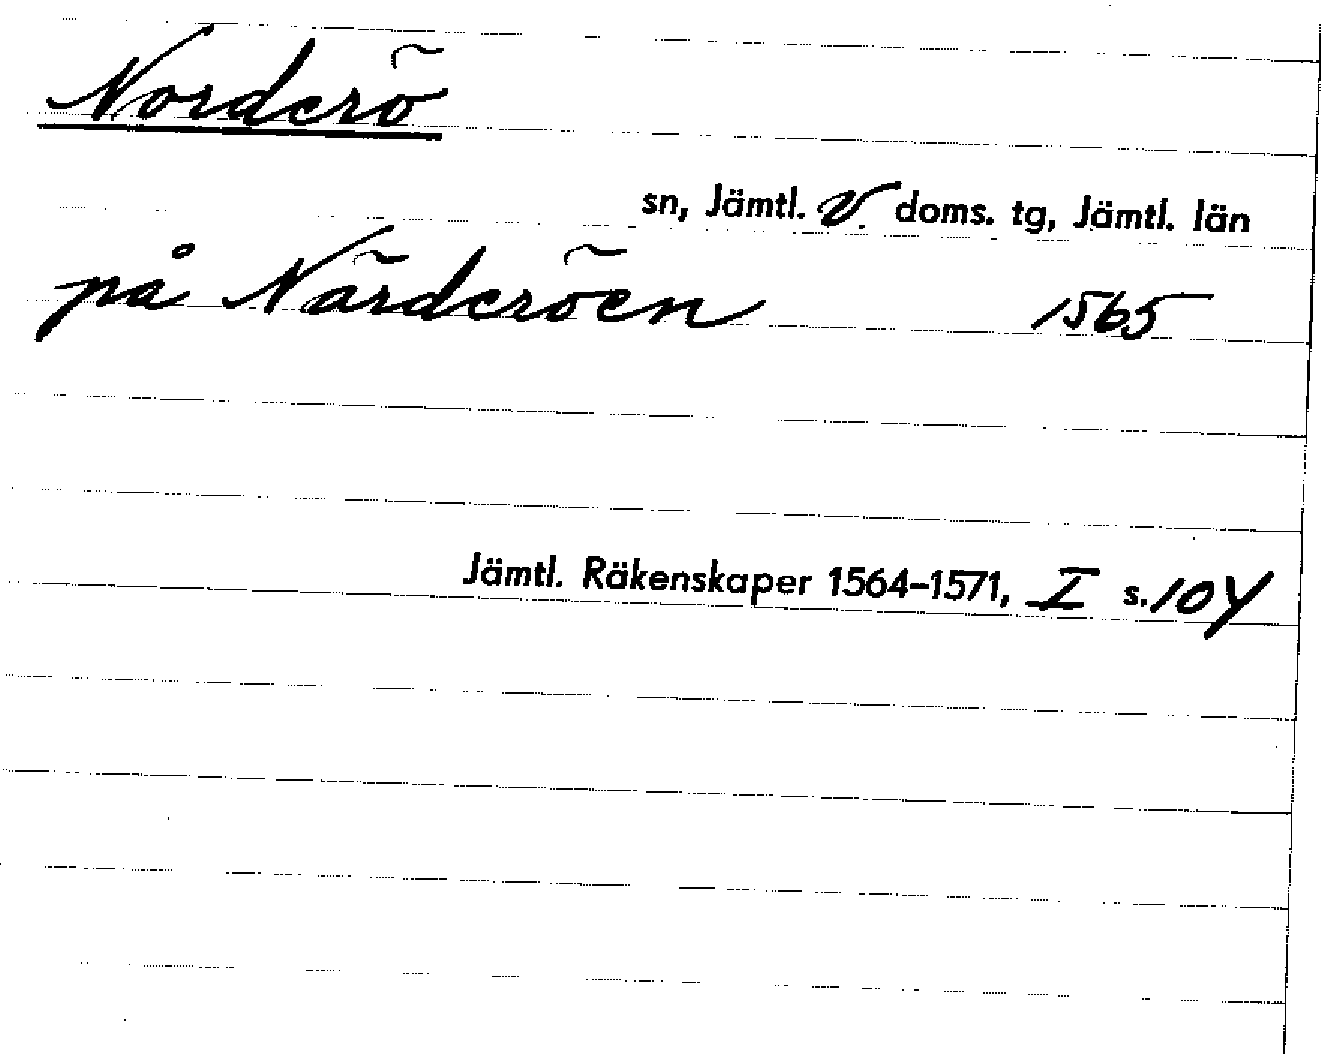 Norderö
sn, Jämtl. V. doms. tg, Jämtl. län
på Närderöen 1565
Jämtl. Räkenskaper 1564–1571, I s. 104